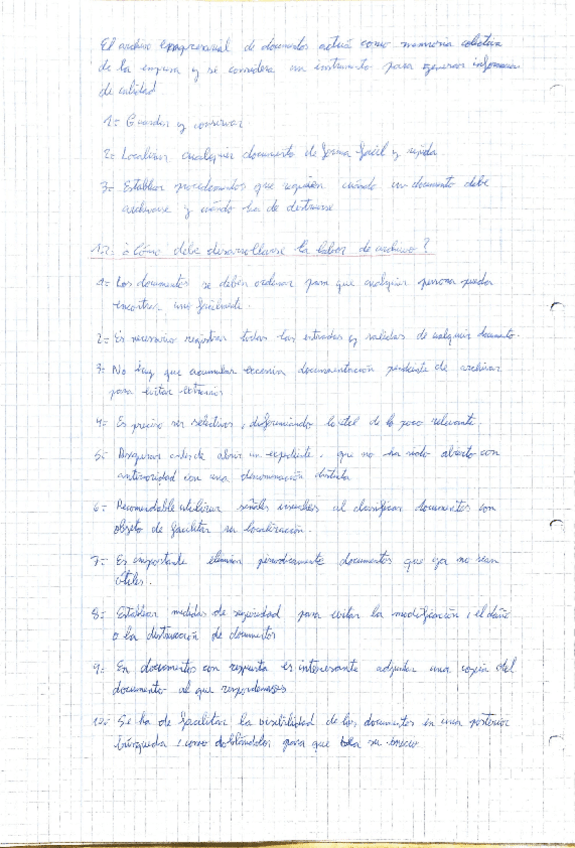 El archivo empresarial de documentos actúa como memoria colectiva
de la empresa y se considera un instrumento para generar información
de calidad
1= Guardar y conservar
2= Localizar cualquier documento de forma fácil y rápida.
3= Establecer procedimientos que regulen cuándo un documento debe
archivarse y cuándo ha de destruirse
1.2: ¿Cómo debe desarrollarse la labor de archivo?
1= Los documentos se deben ordenar para que cualquier persona pueda
encontrar fácilmente.
2= Es necesario registrar todas las entradas y salidas de cualquier documento.
3= No hay que acumular excesiva documentación pendiente de archivar
para evitar extravios
4= Es preciso ser selectivos, lo útil de lo poco relevante.
5= Asegurar antes de abrir un expediente, que no ha sido abierto con
anterioridad con una denominación distinta
6= Recomendable utilizar señales visuales al clasificar documentos con
objeto de facilitar su localización.
7= Es importante eliminar periodicamente documentos que ya no sean
útiles.
8= Establecer medidas de seguridad para evitar la modificación, el daño
o la destrucción de documentos
9= En documentos con respuesta es interesante adjuntar una copia del
documento al que respondemos
10= Se ha de facilitar la visibilidad de los documentos en una posterior
búsqueda, como doblándolos para que su